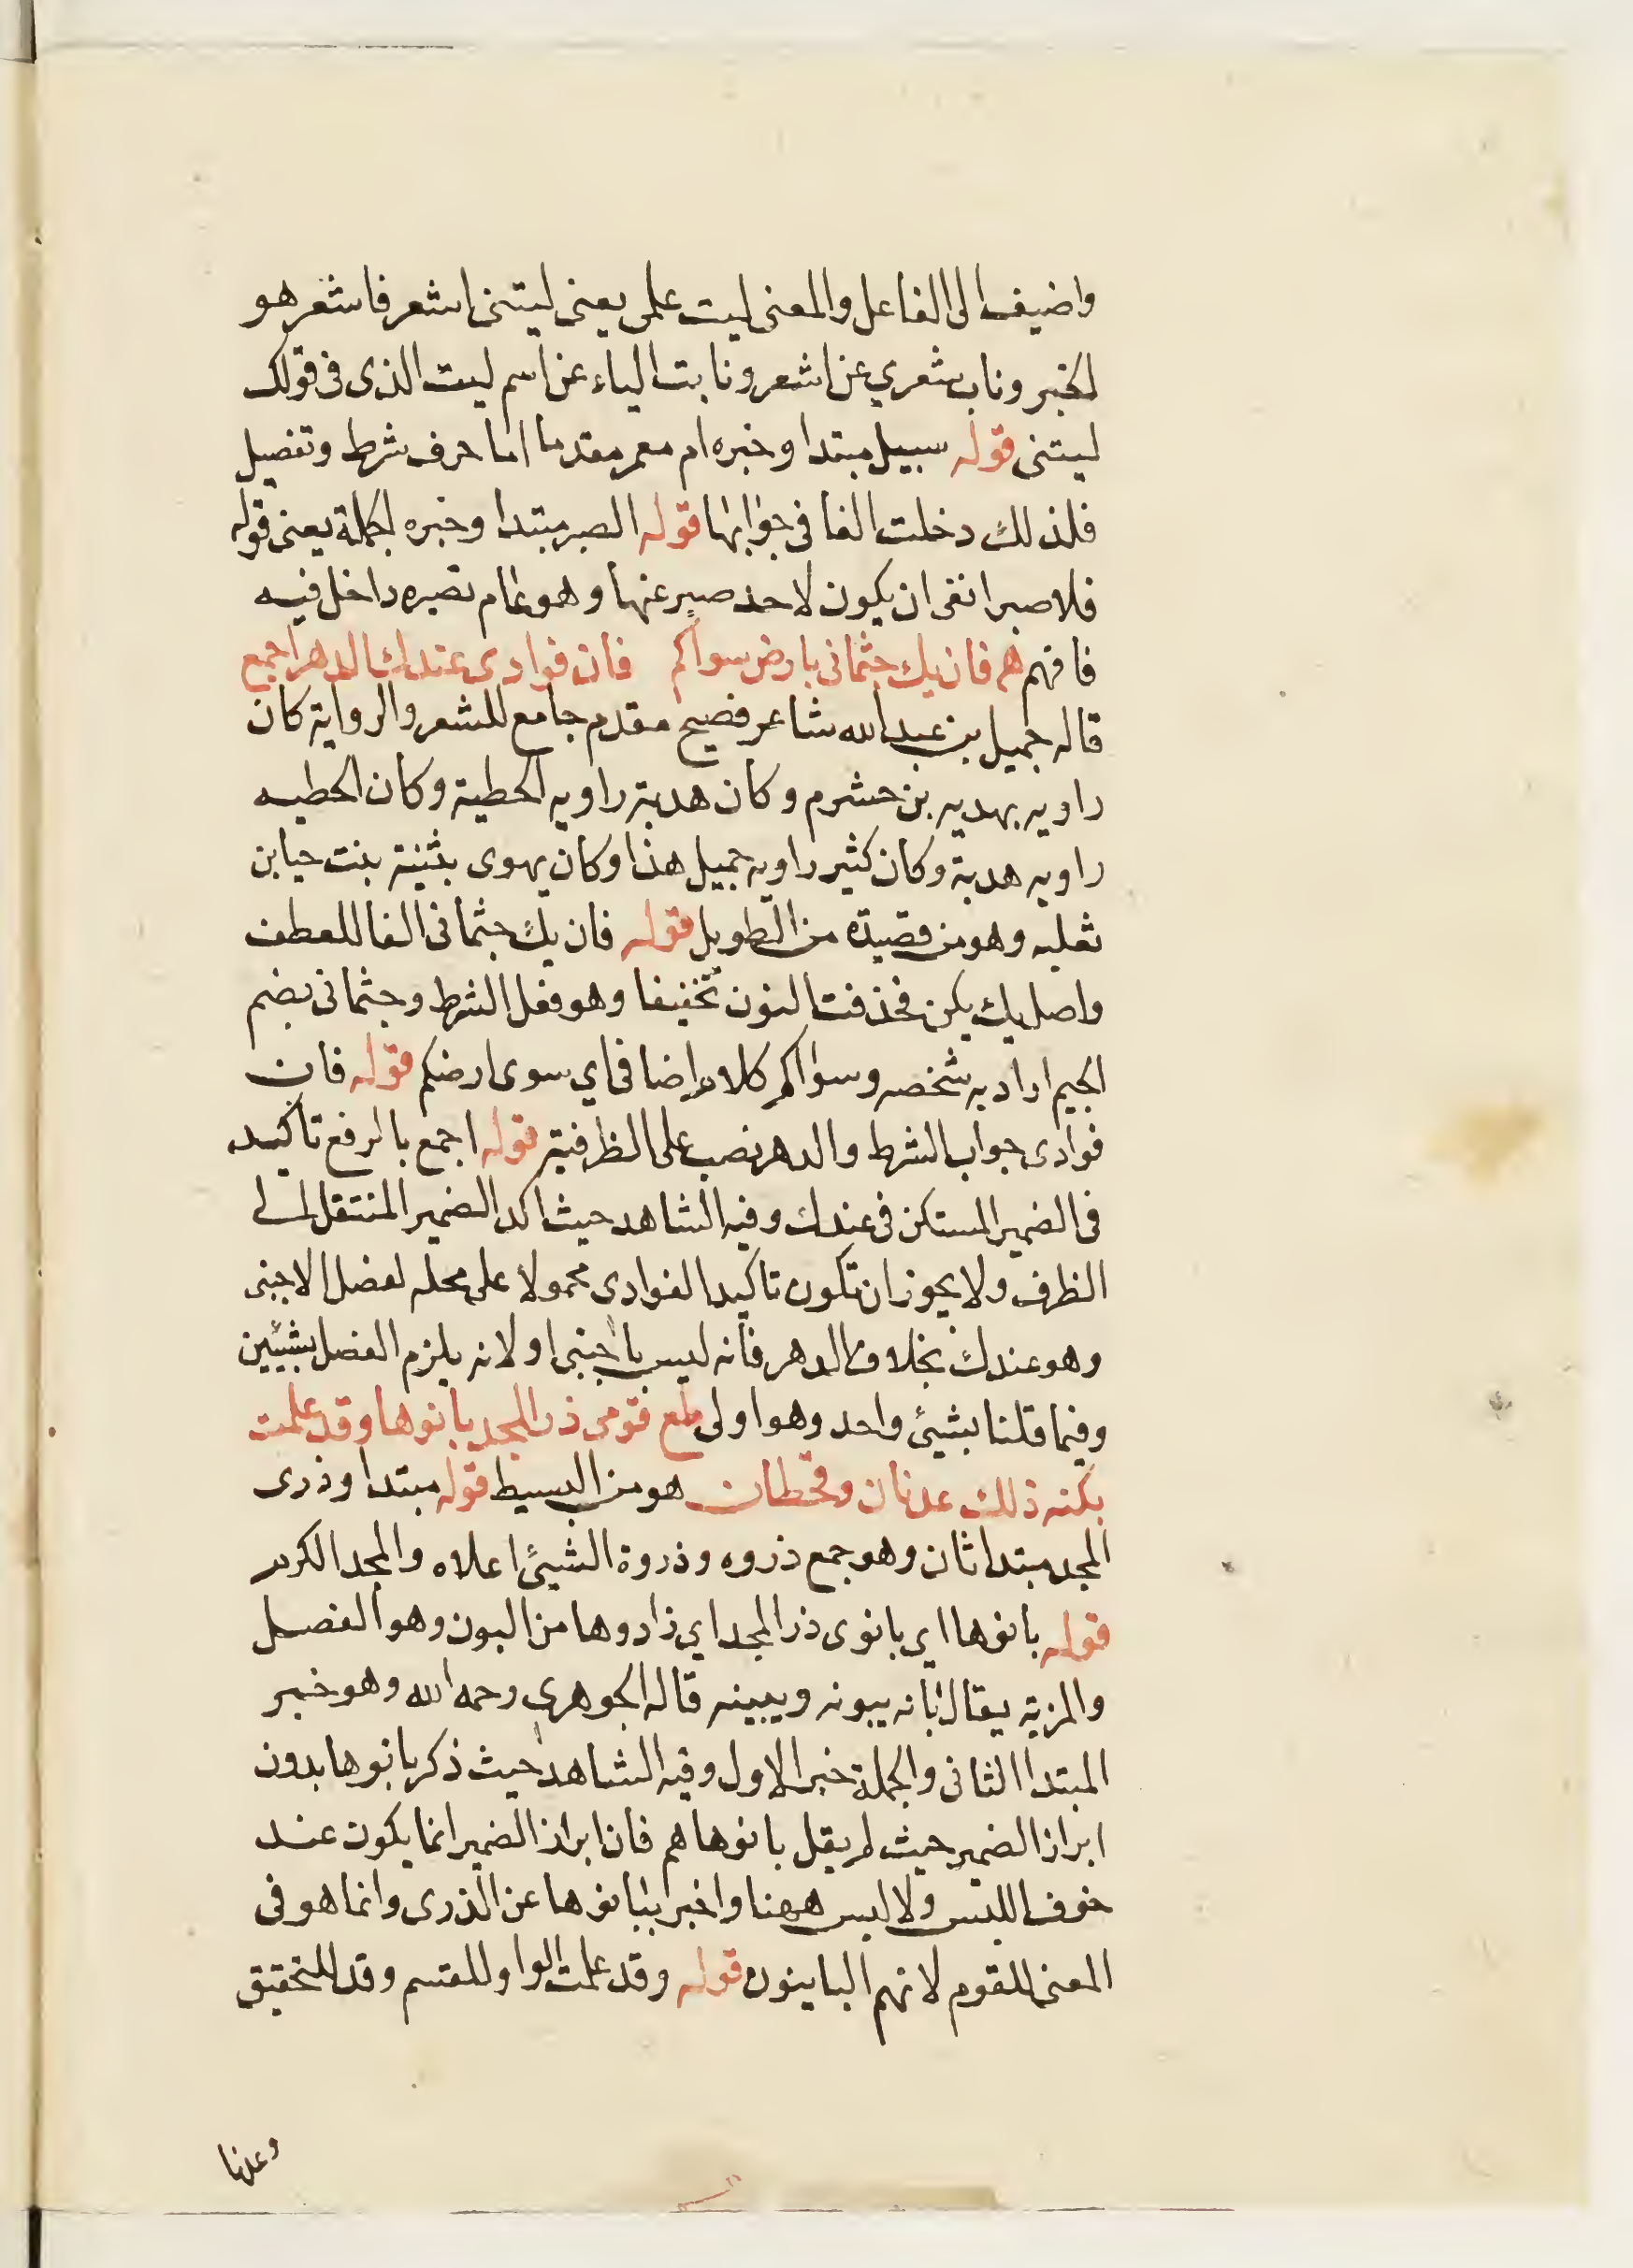 واضيف الى الفاعل والمعنى ليت علمى يعنى ليتنى اشعر فاشعر هو
الخبر وناب شعري عن اشعر ونابت الياء عن اسم ليت الذى فى قولك
ليتنى قوله سبيل مبتدا وخبره ام معمر مقدما اما حرف شرط وتفصيل
فلذلك دخلت الفا فى جوابها قوله الصبر مبتدا وخبره الجملة يعنى قوله
فلا صبرا نفى ان يكون لاحد صبر عنها وهو عام نصيره داخل فيه
فافهم هم فان يك جثمانى بارض سواكم فان فوادى عندك الدهر اجمع
قاله جميل بن عبد الله شاعر فصيح مقدم جامع للشعر والرواية كان
راويه بهدبه بن حشرم وكان هدبة راويه الحطية وكان الحطيه
راويه هدبة وكان كثير راويه جميل هذا وكان يهوى بثينة بنت حيا بن
ثعلبه وهو من قصيدة من الطويل قوله فان يك جثمانى الفا للعطف
واصل يك يكن فحذفت النون تخفيفا وهو فعل الشرط وجثمانى بضم
الجيم اراد به شخصه وسواكم كلام اضافى اي سوى ارضكم قوله فان
فوادى جواب الشرط والدهر نصب على الظرفية قوله اجمع بالرفع تاكيد
فى الضمير المستكن فى عندك وفيه الشاهد حيث اكد الضمير المنتقل الى
الظرف ولا يجوز ان تكون تاكيدا لفوادى محمولا على محله لفصل الاجنبى
وهو عندك بخلاف الدهر فانه ليس باجنبى او لانه يلزم الفصل بشيئين
وفيما قلنا بشيئ واحد وهو اولى ملع قومى ذرا المجد بانوها وقد علمت
بكنه ذلك عدنان وقحطان هو من البسيط قوله مبتدا وذرى
المجد مبتدا ثان وهو جمع ذروه وذروة الشيئ اعلاه والمجد الكرم
قوله بانوها اي بانوى ذرا المجد اي زادوها من البون وهو الفضل
والمزية يقال بانه يبونه ويبينه قاله الجوهرى رحمه الله وهو خبر
المبتدا الثانى والجملة خبر الاول وفيه الشاهد حيث ذكر بانوها بدون
ابراز الضمير حيث لم يقل بانوها هم فان ابراز الضمير انما يكون عند
خوف اللبس ولا لبس ههنا واخبر ببانوها عن الذرى وانما هو فى
المعنى للقوم لانهم الباينون قوله وقد علمت الواو للقسم وقد للتحقيق
وعدنا